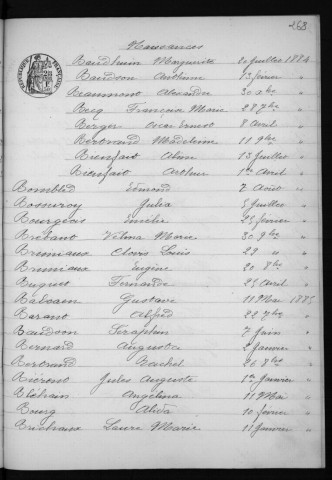 263
Naissances
Baudhuin Marguerite 20 Juillet 1884
Baudson 13 février "
Beaumont Alexandre 30 xbre "
Becq François Marie 28 7bre "
Berger Oscar Ernest 8 Avril "
Bertrand Madeleine 11 9bre "
Bienfait Aline 13 Juillet "
Bienfait Arthur 1er Avril "
Bombled Edmond 7 Août "
Julia 5 Juillet "
Bourgeois Emilie 25 février "
Velma Marie 30 9bre "
Bruniaux Clovis Louis 28 " "
Bruniaux Eugène 20 8bre "
Buguet Fernande 25 Avril "
Gustave 11 Mai 1885
Barant Alfred 22 7bre "
Baudson Séraphin 7 Juin "
Bernard Augusta 2 Janvier "
Bertrand Rachel 26 8bre "
Jules Auguste 1er Janvier "
Angelina 11 Mai "
Bourg Alida 10 février "
Laure Marie 11 Janvier "